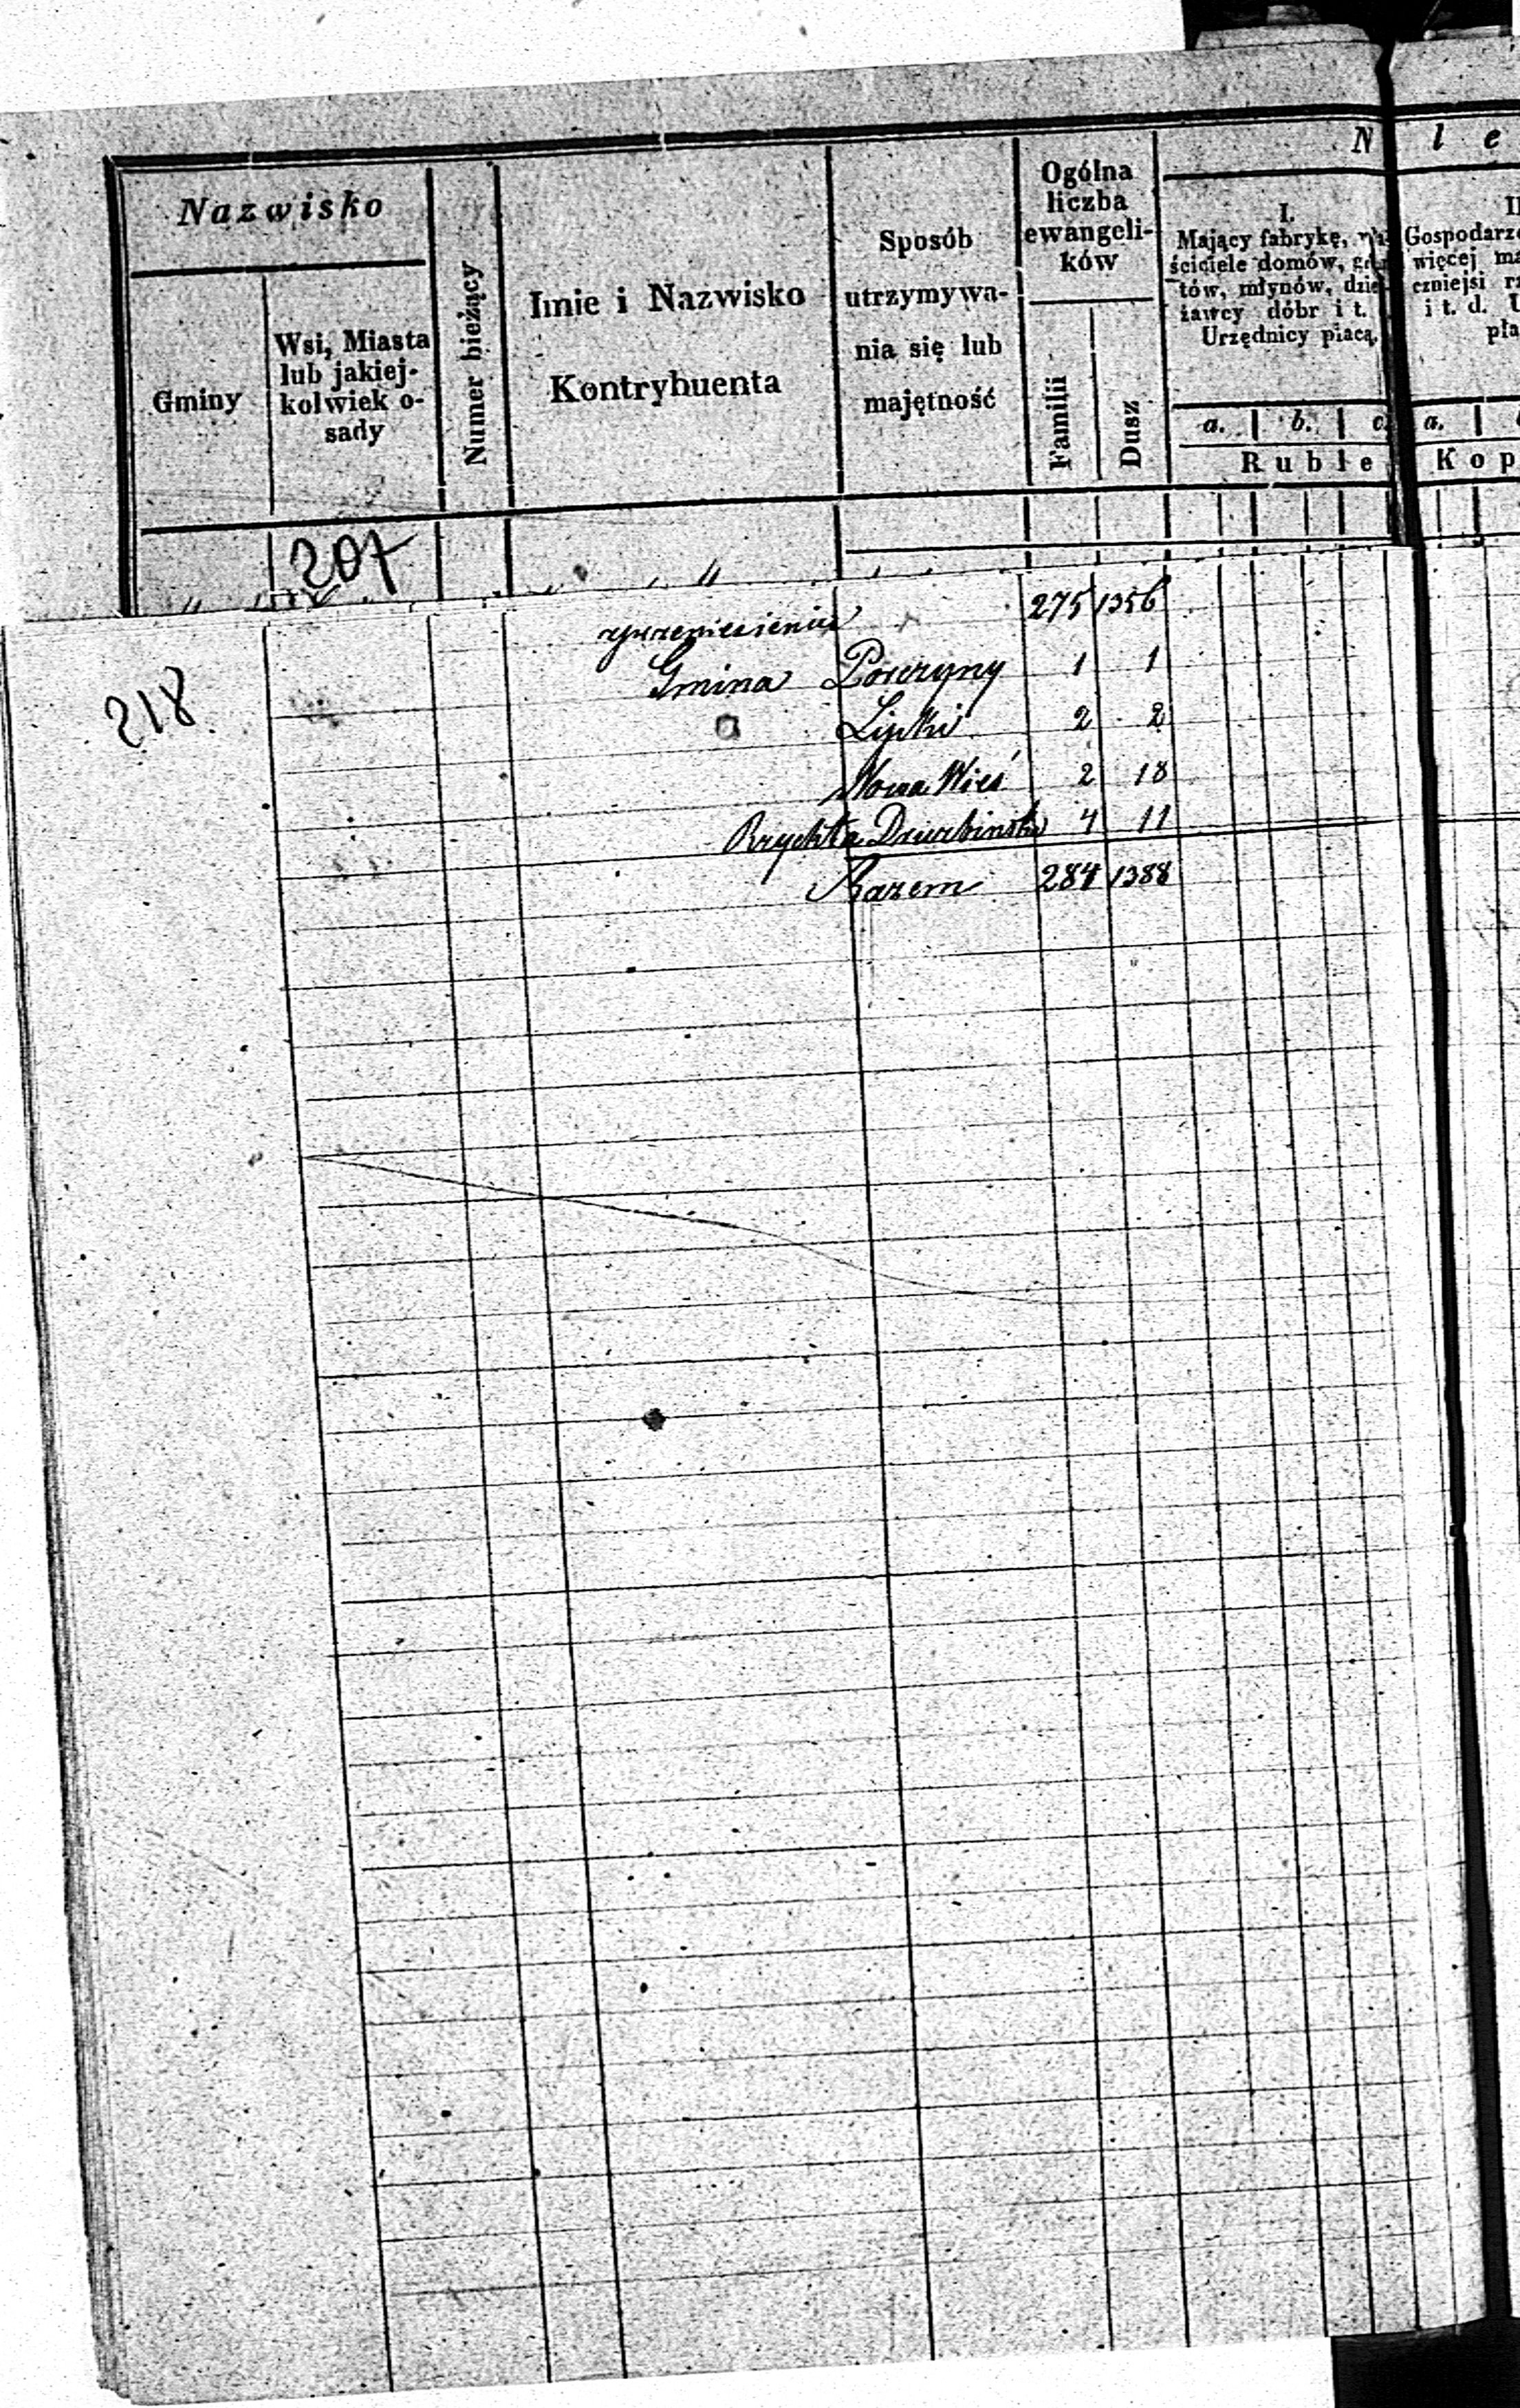 N l e
Nazwisko
Gminy
Wsi, Miasta
lub jakiej-
kolwiek o-
sady
Numer bieżący
Imie i Nazwisko
Kontrybuenta
Sposób
utrzymywa-
nia się lub
majętność
Ogólna
liczba
ewangeli-
ków
Familii
Dusz
I.
Mający fabrykę,
ściciele domów,
tów, młynów,
żawcy dóbr i t.
Urzędnicy płacą,
a. b. c.
Ruble
II
Gospodarze
więcej
czniejsi
i t. d.
a.
Kop
207
218
z przeniesienia 275 1356
Gmina Powczyny 1 1
Lipki 2 2
Nowa Wieś 2 18
4 11
Razem 284 1388